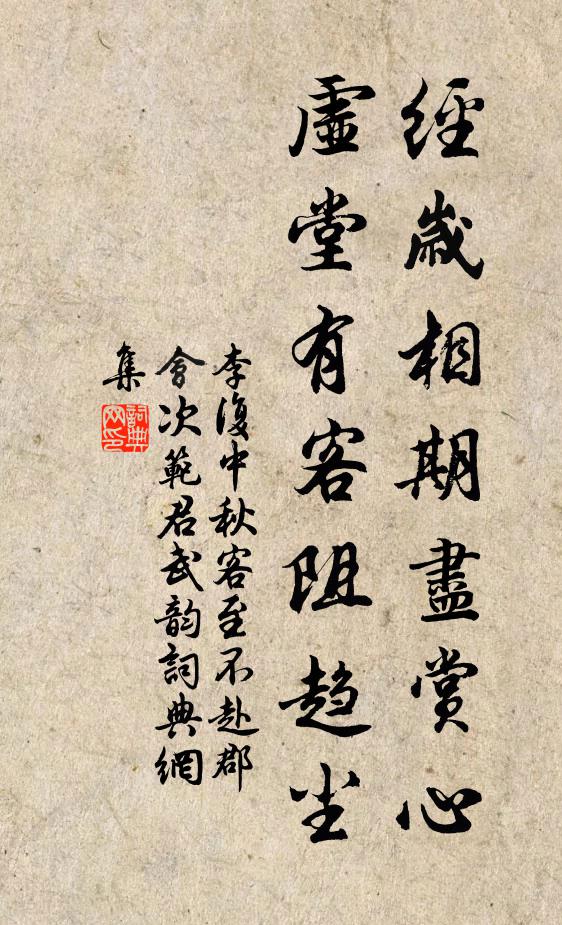 經歲相期盡賞心
虛堂有客阻趨坐
李復中秋客至不赴郡
會次範君武韵詞典網
集
詞典網印